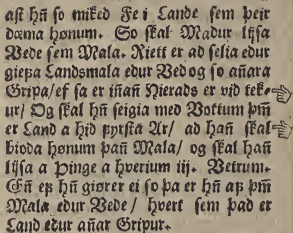 ast hn̄ so miked Fe i Lande sem þeir
dæma hønum. So skal Madur lijsa
Vede sem Mala. Riett er ad selia edur
giefa Landsmala edur Ved og so an̄ara
Gripa/ ef sa er in̄an̄ Hierads er vid teke-
ur/ Og skal hn̄ seigia med Vottum þm̄
er Land a hid fyrsta Ar/ ad han̄ skal-
bioda hønum þan̄ Mala/ og skal han̄
lijsa a Þinge a hverium iij. Vetrum.
En̄ ef hn̄ giører ei so þa er hn̄ af þm̄
Mala edur Vede/ hvert sem þad er
Land edur an̄ar Gripur.